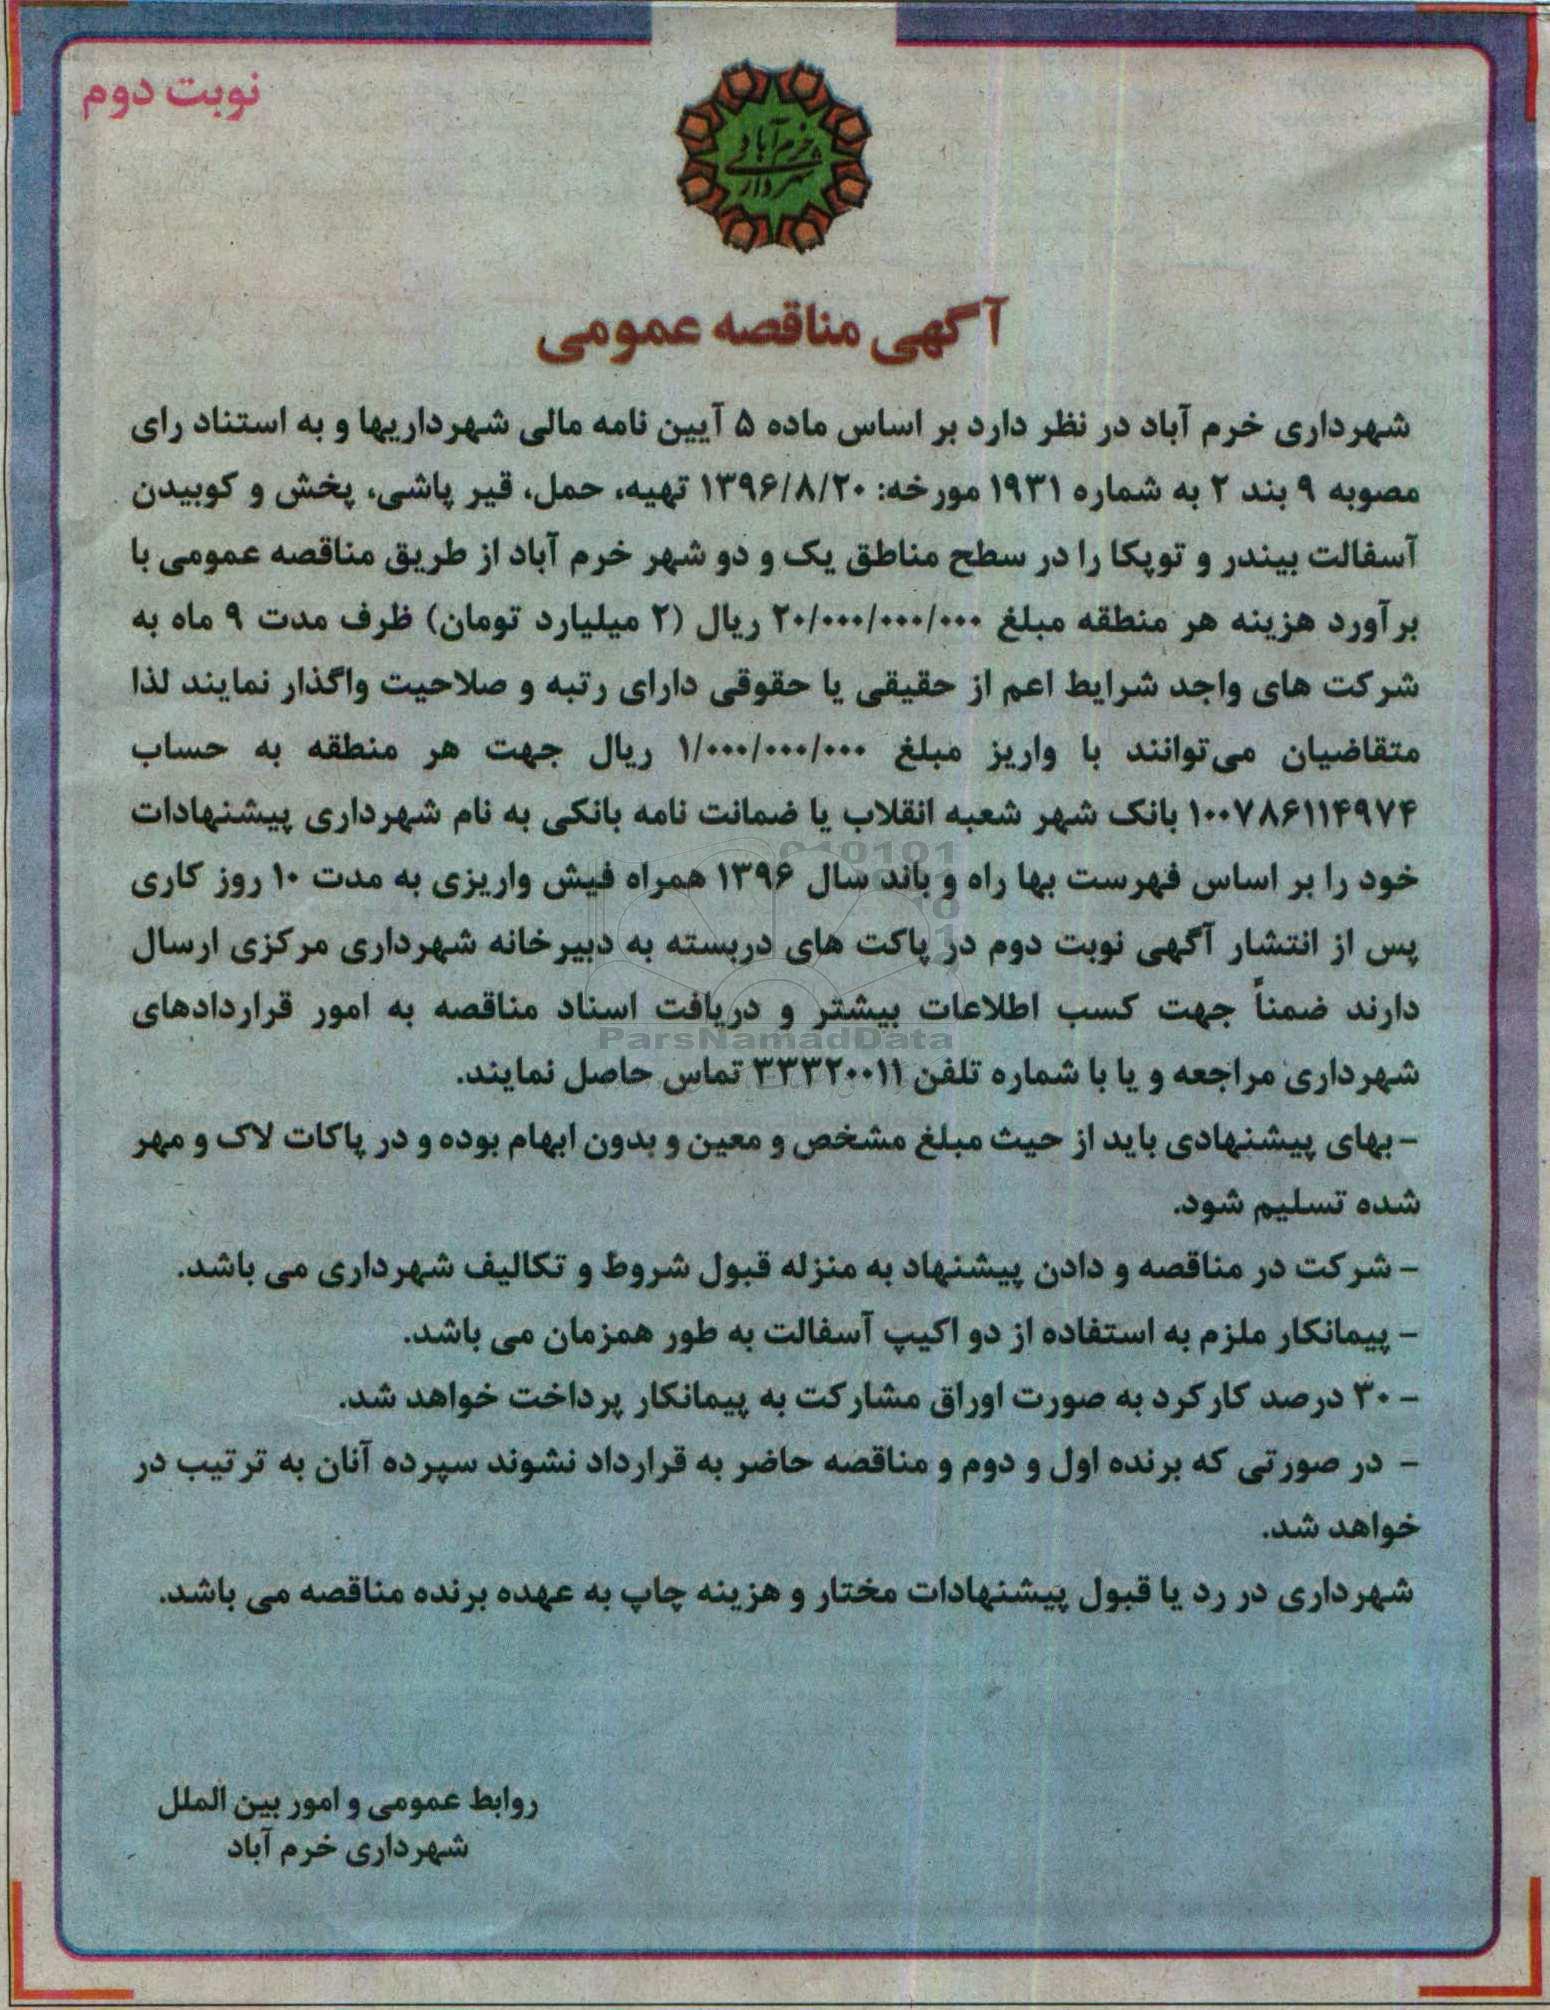 نوبت دوم
خرم آباد
شهرداری
آگهی مناقصه عمومی
شهرداری خرم آباد در نظر دارد بر اساس ماده ۵ آیین نامه مالی شهرداریها و به استناد رای
مصوبه ۹ بند ۲ به شماره ۱۹۳۱ مورخه: ۱۳۹۶/۸/۲۰ تهیه، حمل، قیر پاشی، پخش و کوبیدن
آسفالت بیندر و توپکا را در سطح مناطق یک و دو شهر خرم آباد از طریق مناقصه عمومی با
برآورد هزینه هر منطقه مبلغ ۲۰/۰۰۰/۰۰۰/۰۰۰ ریال (۲ میلیارد تومان) ظرف مدت ۹ ماه به
شرکت های واجد شرایط اعم از حقیقی یا حقوقی دارای رتبه و صلاحیت واگذار نمایند لذا
متقاضیان می‌توانند با واریز مبلغ ۱/۰۰۰/۰۰۰/۰۰۰ ریال جهت هر منطقه به حساب
۱۰۰۷۸۶۱۱۴۹۷۴ بانک شهر شعبه انقلاب یا ضمانت نامه بانکی به نام شهرداری پیشنهادات
خود را بر اساس فهرست بها راه و باند سال ۱۳۹۶ همراه فیش واریزی به مدت ۱۰ روز کاری
پس از انتشار آگهی نوبت دوم در پاکت های دربسته به دبیرخانه شهرداری مرکزی ارسال
دارند ضمناً جهت کسب اطلاعات بیشتر و دریافت اسناد مناقصه به امور قراردادهای
ParsNamadData
شهرداری مراجعه و یا با شماره تلفن ۳۳۳۲۰۰۱۱ تماس حاصل نمایند.
- بهای پیشنهادی باید از حیث مبلغ مشخص و معین و بدون ابهام بوده و در پاکات لاک و مهر
شده تسلیم شود.
- شرکت در مناقصه و دادن پیشنهاد به منزله قبول شروط و تکالیف شهرداری می باشد.
- پیمانکار ملزم به استفاده از دو اکیپ آسفالت به طور همزمان می باشد.
- ۳۰ درصد کارکرد به صورت اوراق مشارکت به پیمانکار پرداخت خواهد شد.
- در صورتی که برنده اول و دوم و مناقصه حاضر به قرارداد نشوند سپرده آنان به ترتیب در
خواهد شد.
شهرداری در رد یا قبول پیشنهادات مختار و هزینه چاپ به عهده برنده مناقصه می باشد.
روابط عمومی و امور بین الملل
شهرداری خرم آباد